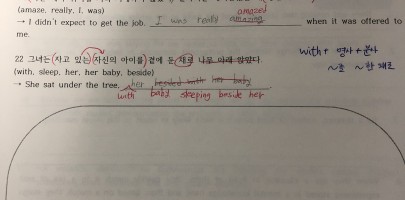 (amaze, really, I, was)
amazed
→ I didn't expect to get the job. I was really amazing when it was offered to
me.
22 그녀는 자고 있는 자신의 아이를 곁에 둔 채로 나무 아래 앉았다.
with + 명사 + 분사
(with, sleep, her, her baby, beside)
~를 ~한 채로
→ She sat under the tree. her besided with her baby
with baby sleeping beside her